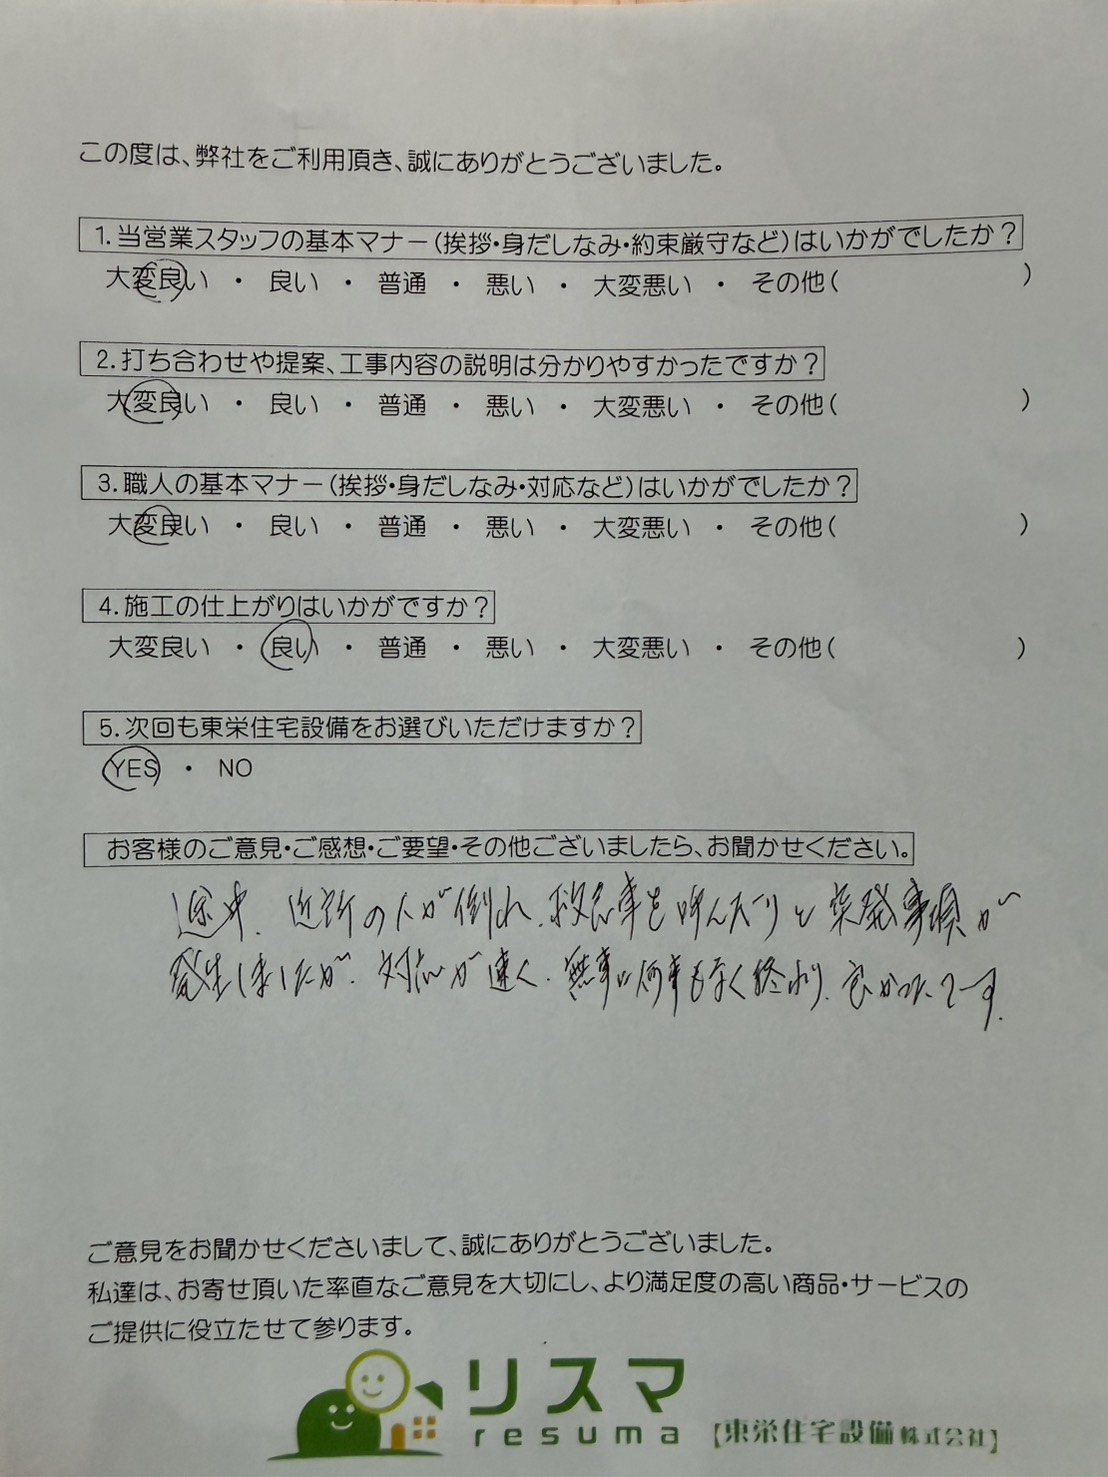 この度は、弊社をご利用頂き、誠にありがとうございました。
1.当営業スタッフの基本マナー(挨拶・身だしなみ・約束厳守など)はいかがでしたか?
大変良い ・ 良い ・ 普通 ・ 悪い ・ 大変悪い ・ その他( )
2.打ち合わせや提案、工事内容の説明は分かりやすかったですか?
大変良い ・ 良い ・ 普通 ・ 悪い ・ 大変悪い ・ その他( )
3.職人の基本マナー(挨拶・身だしなみ・対応など)はいかがでしたか?
大変良い ・ 良い ・ 普通 ・ 悪い ・ 大変悪い ・ その他( )
4.施工の仕上がりはいかがですか?
大変良い ・ 良い ・ 普通 ・ 悪い ・ 大変悪い ・ その他( )
5.次回も東栄住宅設備をお選びいただけますか?
YES ・ NO
お客様のご意見・ご感想・ご要望・その他ございましたら、お聞かせください。
途中、近所の人が倒れ、救急車を呼んだりと突発事項が
発生しましたが、対応が速く、無事に何事もなく終わり、良かったです。
ご意見をお聞かせくださいまして、誠にありがとうございました。
私達は、お寄せ頂いた率直なご意見を大切にし、より満足度の高い商品・サービスの
ご提供に役立たせて参ります。
リスマ
resuma 【東栄住宅設備株式会社】